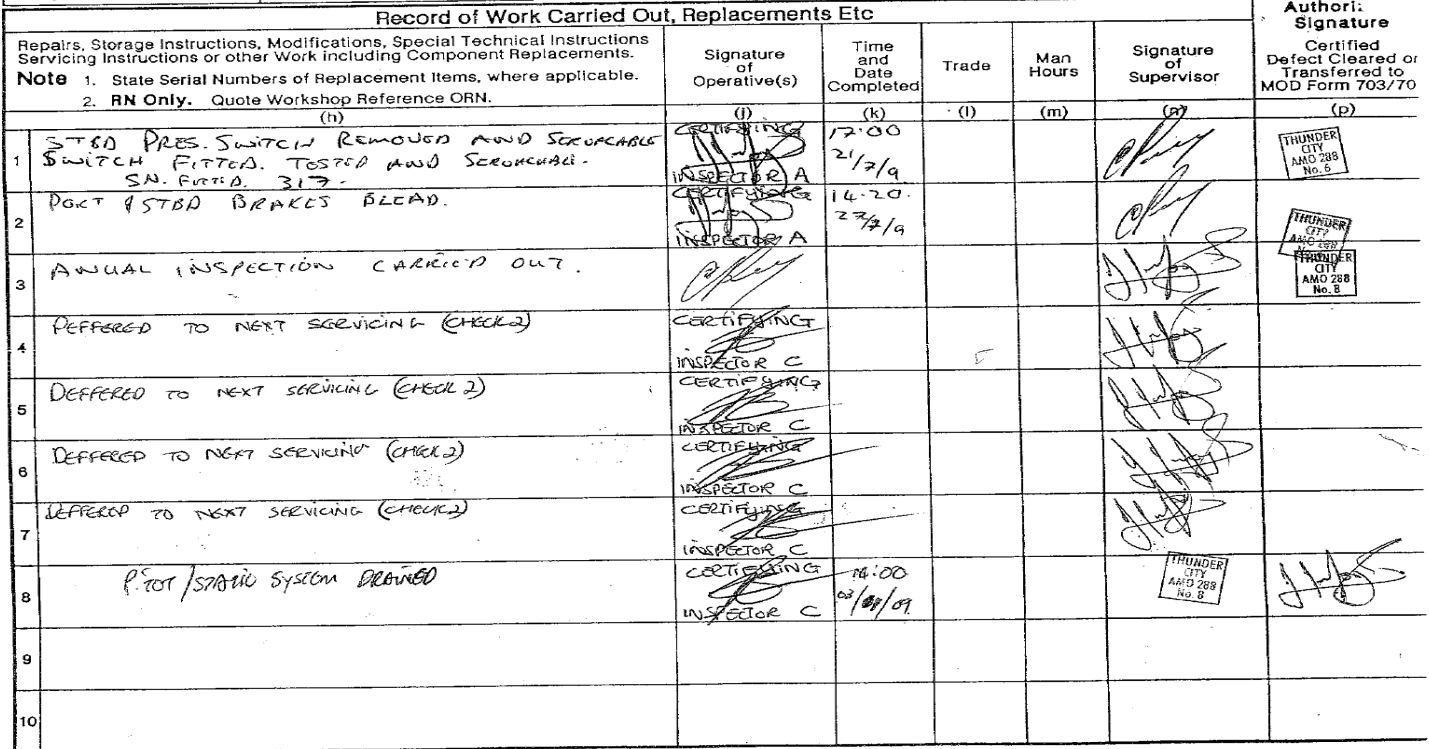 Record of Work Carried Out, Replacements Etc
Authori:
Signature
Repairs, Storage Instructions, Modifications, Special Technical Instructions
Servicing Instructions or other Work including Component Replacements.
Note 1. State Serial Numbers of Replacement Items, where applicable.
2. RN Only. Quote Workshop Reference ORN.
Signature
of
Operative(s)
Time
and
Date
Completed
Trade
Man
Hours
Signature
of
Supervisor
Certified
Defect Cleared or
Transferred to
MOD Form 703/70
(h) (j) (k) (l) (m) (n) (p)
1 STBD PRES. SWITCH REMOVED AND SERVICABLE
SWITCH FITTED. TESTED AND SERVICABLE.
SN. FITTED. 317.
CERTIFYING
INSPECTOR A
17:00
21/7/9
THUNDER
CITY
AMO 288
No. 6
2 PORT & STBD BRAKES BLEAD.
CERTIFYING
INSPECTOR A
14.20.
27/7/9
THUNDER
CITY
AMO 288
3 ANUAL INSPECTION CARRIED OUT.
THUNDER
CITY
AMO 288
No. 8
4 DEFFERED TO NEXT SERVICING (CHECK 2)
CERTIFYING
INSPECTOR C
5 DEFFERED TO NEXT SERVICING (CHECK 2)
CERTIFYING
INSPECTOR C
6 DEFFERED TO NEXT SERVICING (CHECK 2)
CERTIFYING
INSPECTOR C
7 DEFFERED TO NEXT SERVICING (CHECK 2)
CERTIFYING
INSPECTOR C
8 PITOT/STATIC SYSTEM DRAINED
CERTIFYING
INSPECTOR C
14:00
THUNDER
CITY
AMO 288
No. 8
9
10